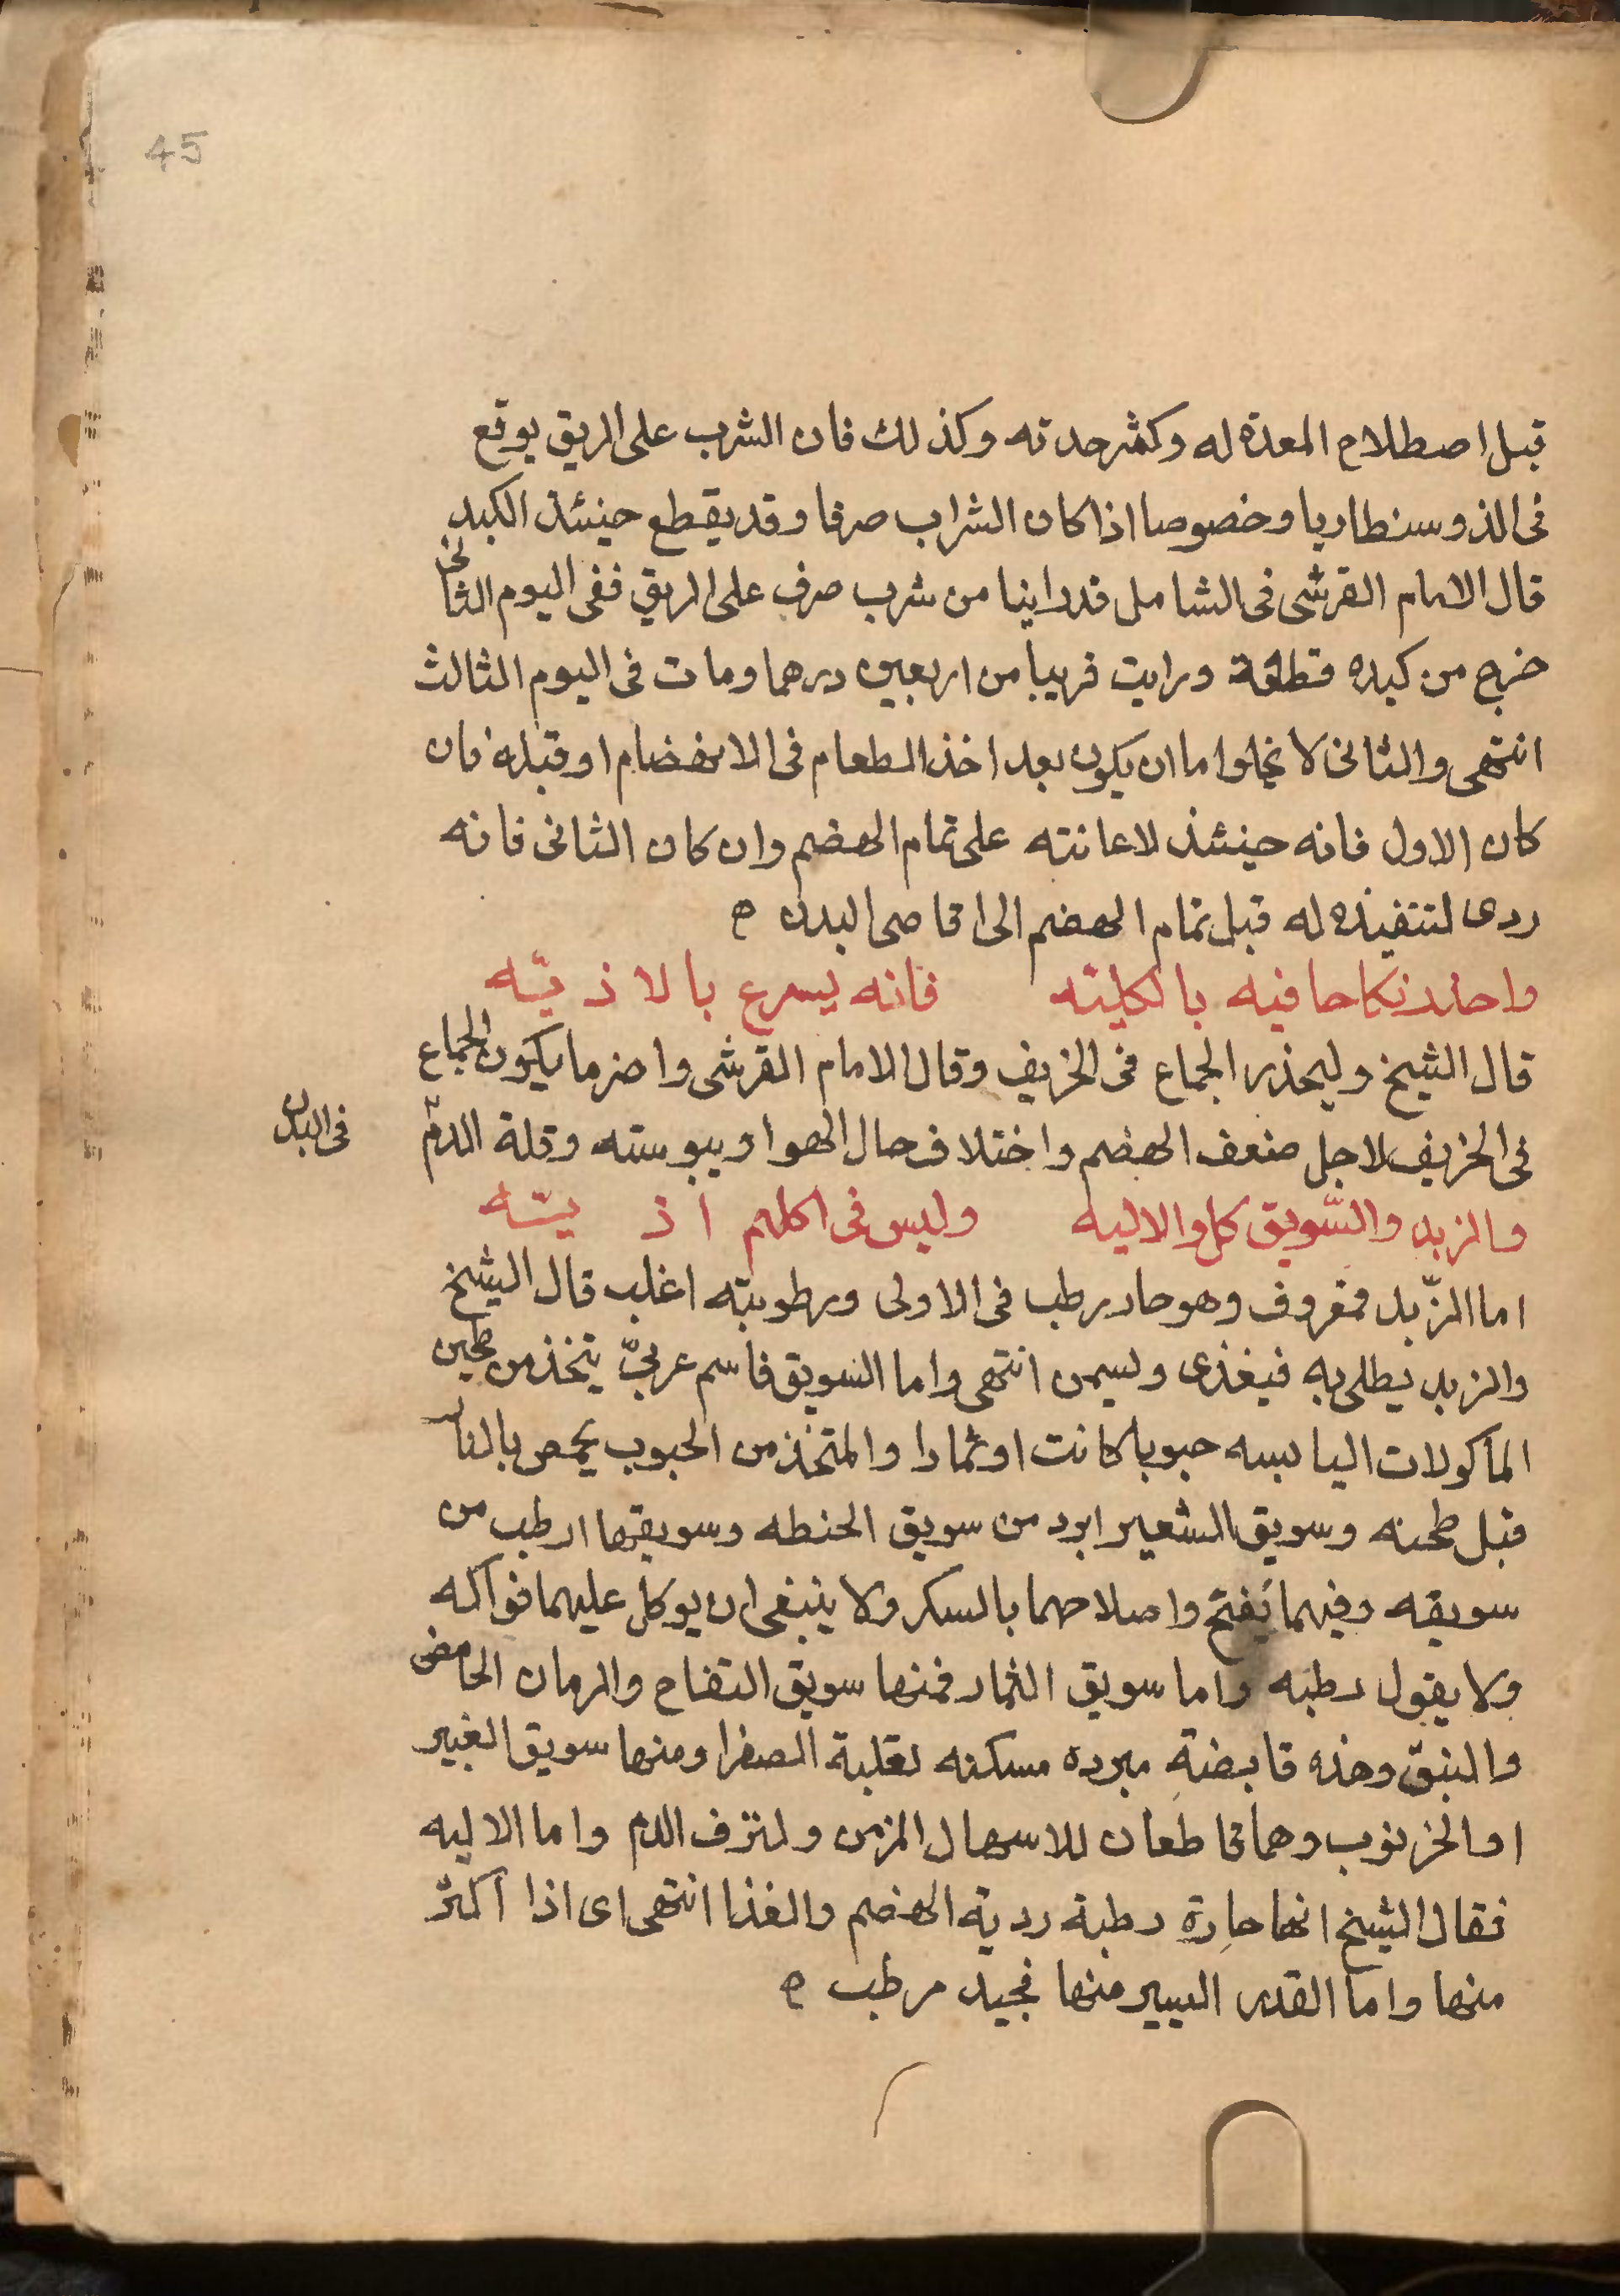 45
قبل اصطلاح المعدة له وكثر حدته وكذلك فان الشرب على الريق يوقع
فى الذوسنطاريا وخصوصا اذا كان الشراب صرفا وقد يقطع حينئذ الكبد
قال الامام القرشى فى الشامل قد راينا من شرب صرف على الريق ففى اليوم الثانى
خرج من كبده قطعة ورايت قريبا من اربعين درهما ومات فى اليوم الثالث
انتهى والثانى لا يخلوا ما ان يكون بعد اخذ الطعام فى الانهضام او قبله فان
كان الاول فانه حينئذ لاعانته على تمام الهضم وان كان الثانى فانه
ردى لتنفيذه له قبل تمام الهضم الى اقاصى البدن ه
واحذر نكاحا فيه بالكليّه فانه يسرع بالاذيّه
قال الشيخ وليحذر الجماع فى الخريف وقال الامام القرشى واضر ما يكون الجماع
فى الخريف لاجل ضعف الهضم واختلاف حال الهوا ويبوسته وقلة الدمّ
فى البدن
والزبد والسّويق كل والاليه وليس فى اكلهم اذيّه
اما الزّبد فمعروف وهو حار رطب فى الاولى ورطوبته اغلب قال الشيخ
والزبد يطلى به فيغذى ويسمن انتهى واما السويق فاسم عربىّ يتخذ من طحين
المأكولات اليابسه حبوبا كانت او ثمارا والمتخذ من الحبوب يحمص بالنار
قبل طحنه وسويق الشعير ابرد من سويق الحنطه وسويقها ارطب من
سويقه وفيهما نفخ واصلاحهما بالسكر ولا ينبغى ان يوكل عليهما فواكه
ولا بقول رطبه واما سويق الثمار فمنها سويق التفاح والرمان الحامض
والنبق وهذه قابضة مبرده مسكنه لغلبة الصفرا ومنها سويق الغبير
او الخرنوب وهما قاطعان للاسهال المزمن ولنزف الدم واما الاليه
فقال الشيخ انها حارة رطبة ردية الهضم والغذا انتهى اى اذا اكثر
منها واما القدر اليسير منها فجيد مرطب ه